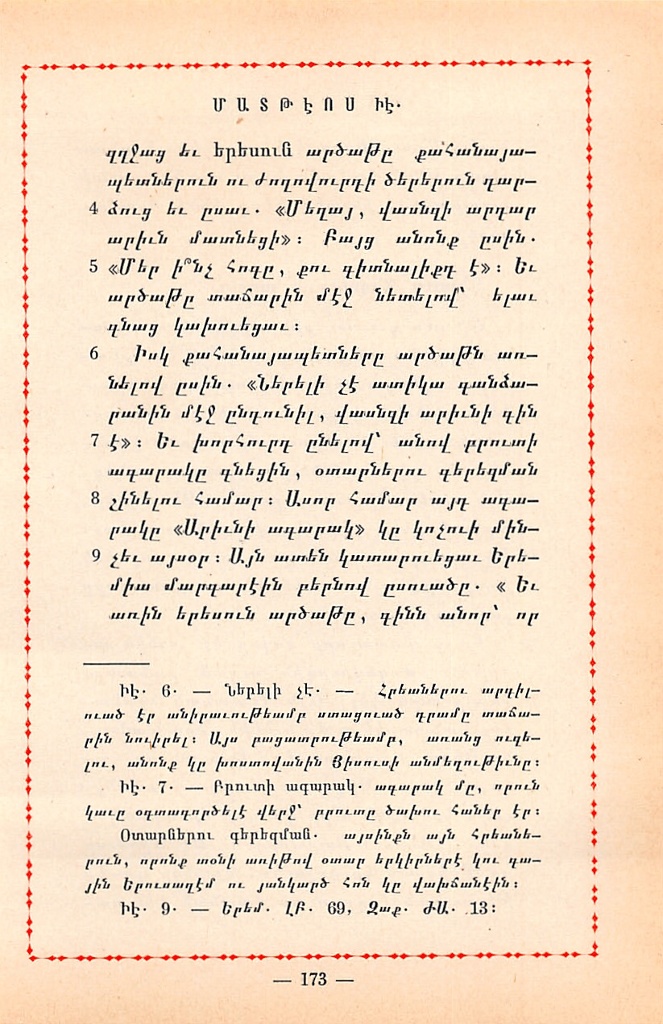 ՄԱՏԹԷՈՍ ԻԷ.
զղջաց եւ երեսուն արծաթը քահանայա—
պետներուն ու ժողովուրդի ծերերուն դար—
4 ձուց եւ ըսաւ. «Մեղայ, վասնզի արդար
արիւն մատնեցի»: Բայց անոնք ըսին.
5 «Մեր ի՞նչ հոգը, քու գիտնալիքդ է»: Եւ
արծաթը տաճարին մէջ նետելով՝ ելաւ
գնաց կախուեցաւ:
6 Իսկ քահանայապետները արծաթն առ—
նելով ըսին. «Ներելի չէ ատիկա գանձա—
րանին մէջ ընդունիլ, վասնզի արիւնի գին
7 է»: Եւ խորհուրդ ընելով՝ անով բրուտի
ագարակը գնեցին, օտարներու գերեզման
8 շինելու համար: Ասոր համար այդ ագա—
րակը «Արիւնի ագարակ» կը կոչուի մին—
9 չեւ այսօր: Այն ատեն կատարուեցաւ Երե—
միա մարգարէին բերնով ըսուածը. « Եւ
առին երեսուն արծաթը, գինն անոր՝ որ
ԻԷ. 6. — Ներելի չէ. — Հրեաներու արգիլ—
ուած էր անիրաւութեամբ ստացուած դրամը տաճա—
րին նուիրել: Այս բացատրութեամբ, առանց ուզե—
լու, անոնք կը խոստովանին Յիսուսի անմեղութիւնը:
ԻԷ. 7. — Բրուտի ագարակ. ագարակ մը, որուն
կաւը օգտագործելէ վերջ՝ բրուտը ծախու հաներ էր:
Օտարներու գերեզման. այսինքն այն Հրեանե—
րուն, որոնք տօնի առիթով օտար երկիրներէ կու գա—
յին Երուսաղէմ ու յանկարծ հոն կը վախճանէին:
ԻԷ. 9. — Երեմ. ԼԲ. 69, Զաք. ԺԱ. 13:
— 173 —